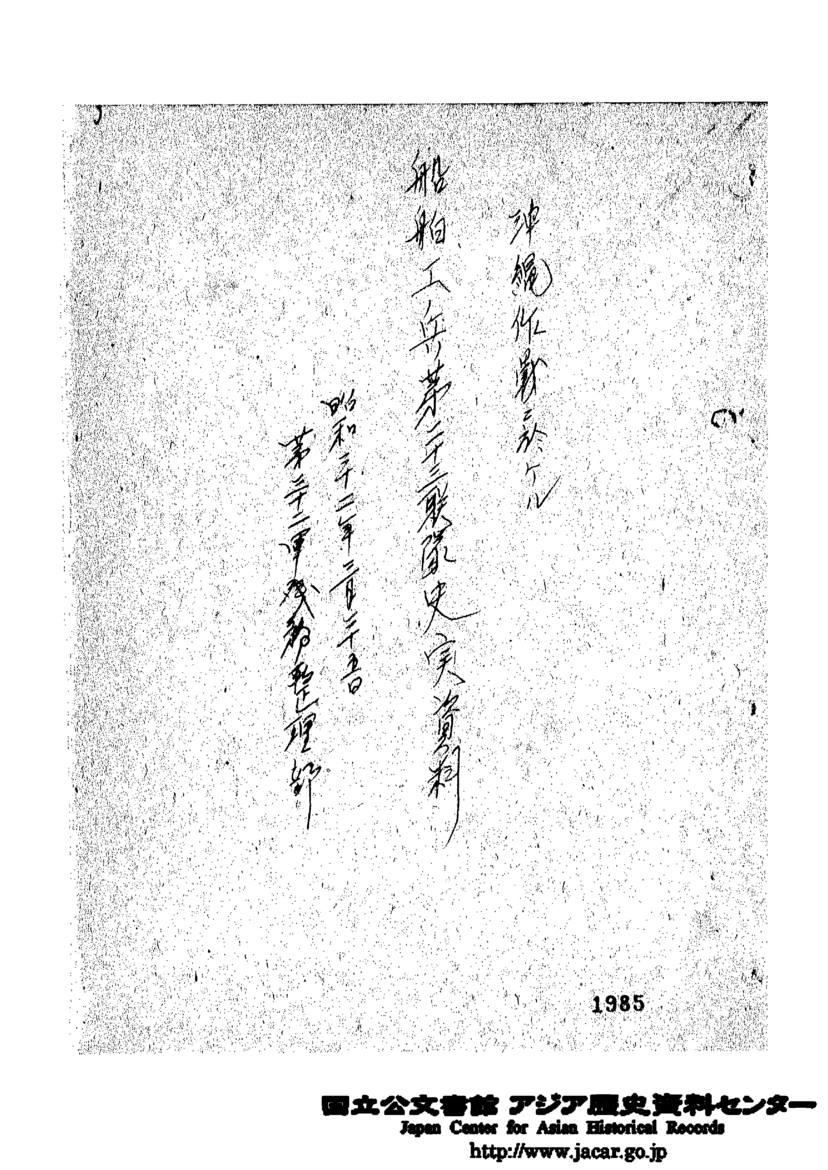 沖縄作戦ニ於ケル
船舶工兵第二十三聯隊史実資料
昭和二十二年三月二十五日
第三十二軍残務整理部
1985
国立公文書館 アジア歴史資料センター
Japan Center for Asian Historical Records
http://www.jacar.go.jp